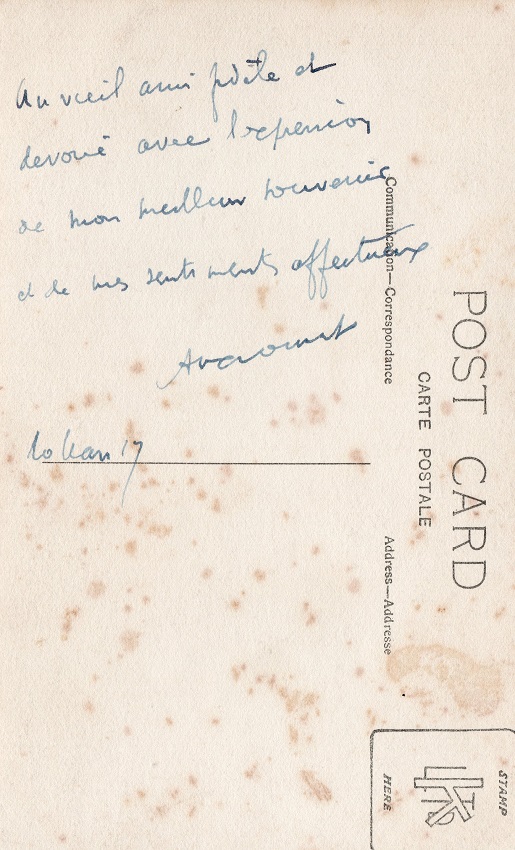 Au vieil ami fidèle et
devoué avec l'expression
de mon meilleur souvenir
et de mes sentiments affectueux
17
Communication—Correspondance
POST CARD
CARTE POSTALE
Address—Addresse
STAMP
HERE